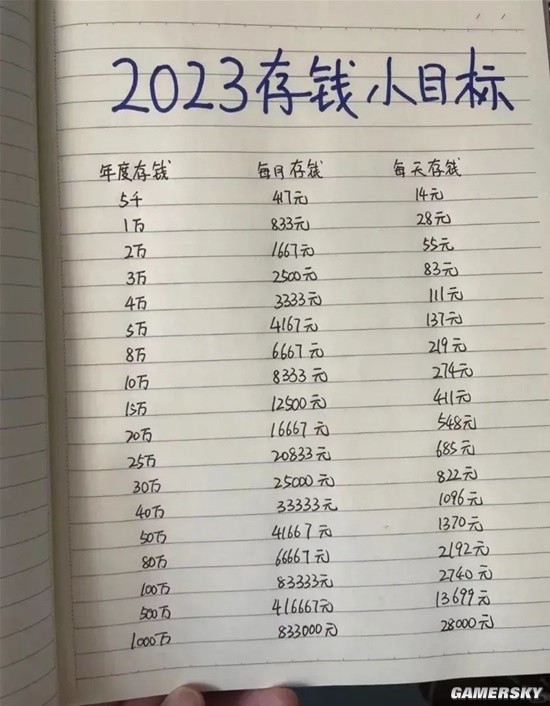 2023存钱小目标
年度存钱 每月存钱 每天存钱
5千 417元 14元
1万 833元 28元
2万 1667元 55元
3万 2500元 83元
4万 3333元 111元
5万 4167元 137元
8万 6667元 219元
10万 8333元 274元
15万 12500元 411元
20万 16667元 548元
25万 20833元 685元
30万 25000元 822元
40万 33333元 1096元
50万 41667元 1370元
80万 66667元 2192元
100万 83333元 2740元
500万 416667元 13699元
1000万 833000元 28000元
GAMERSKY